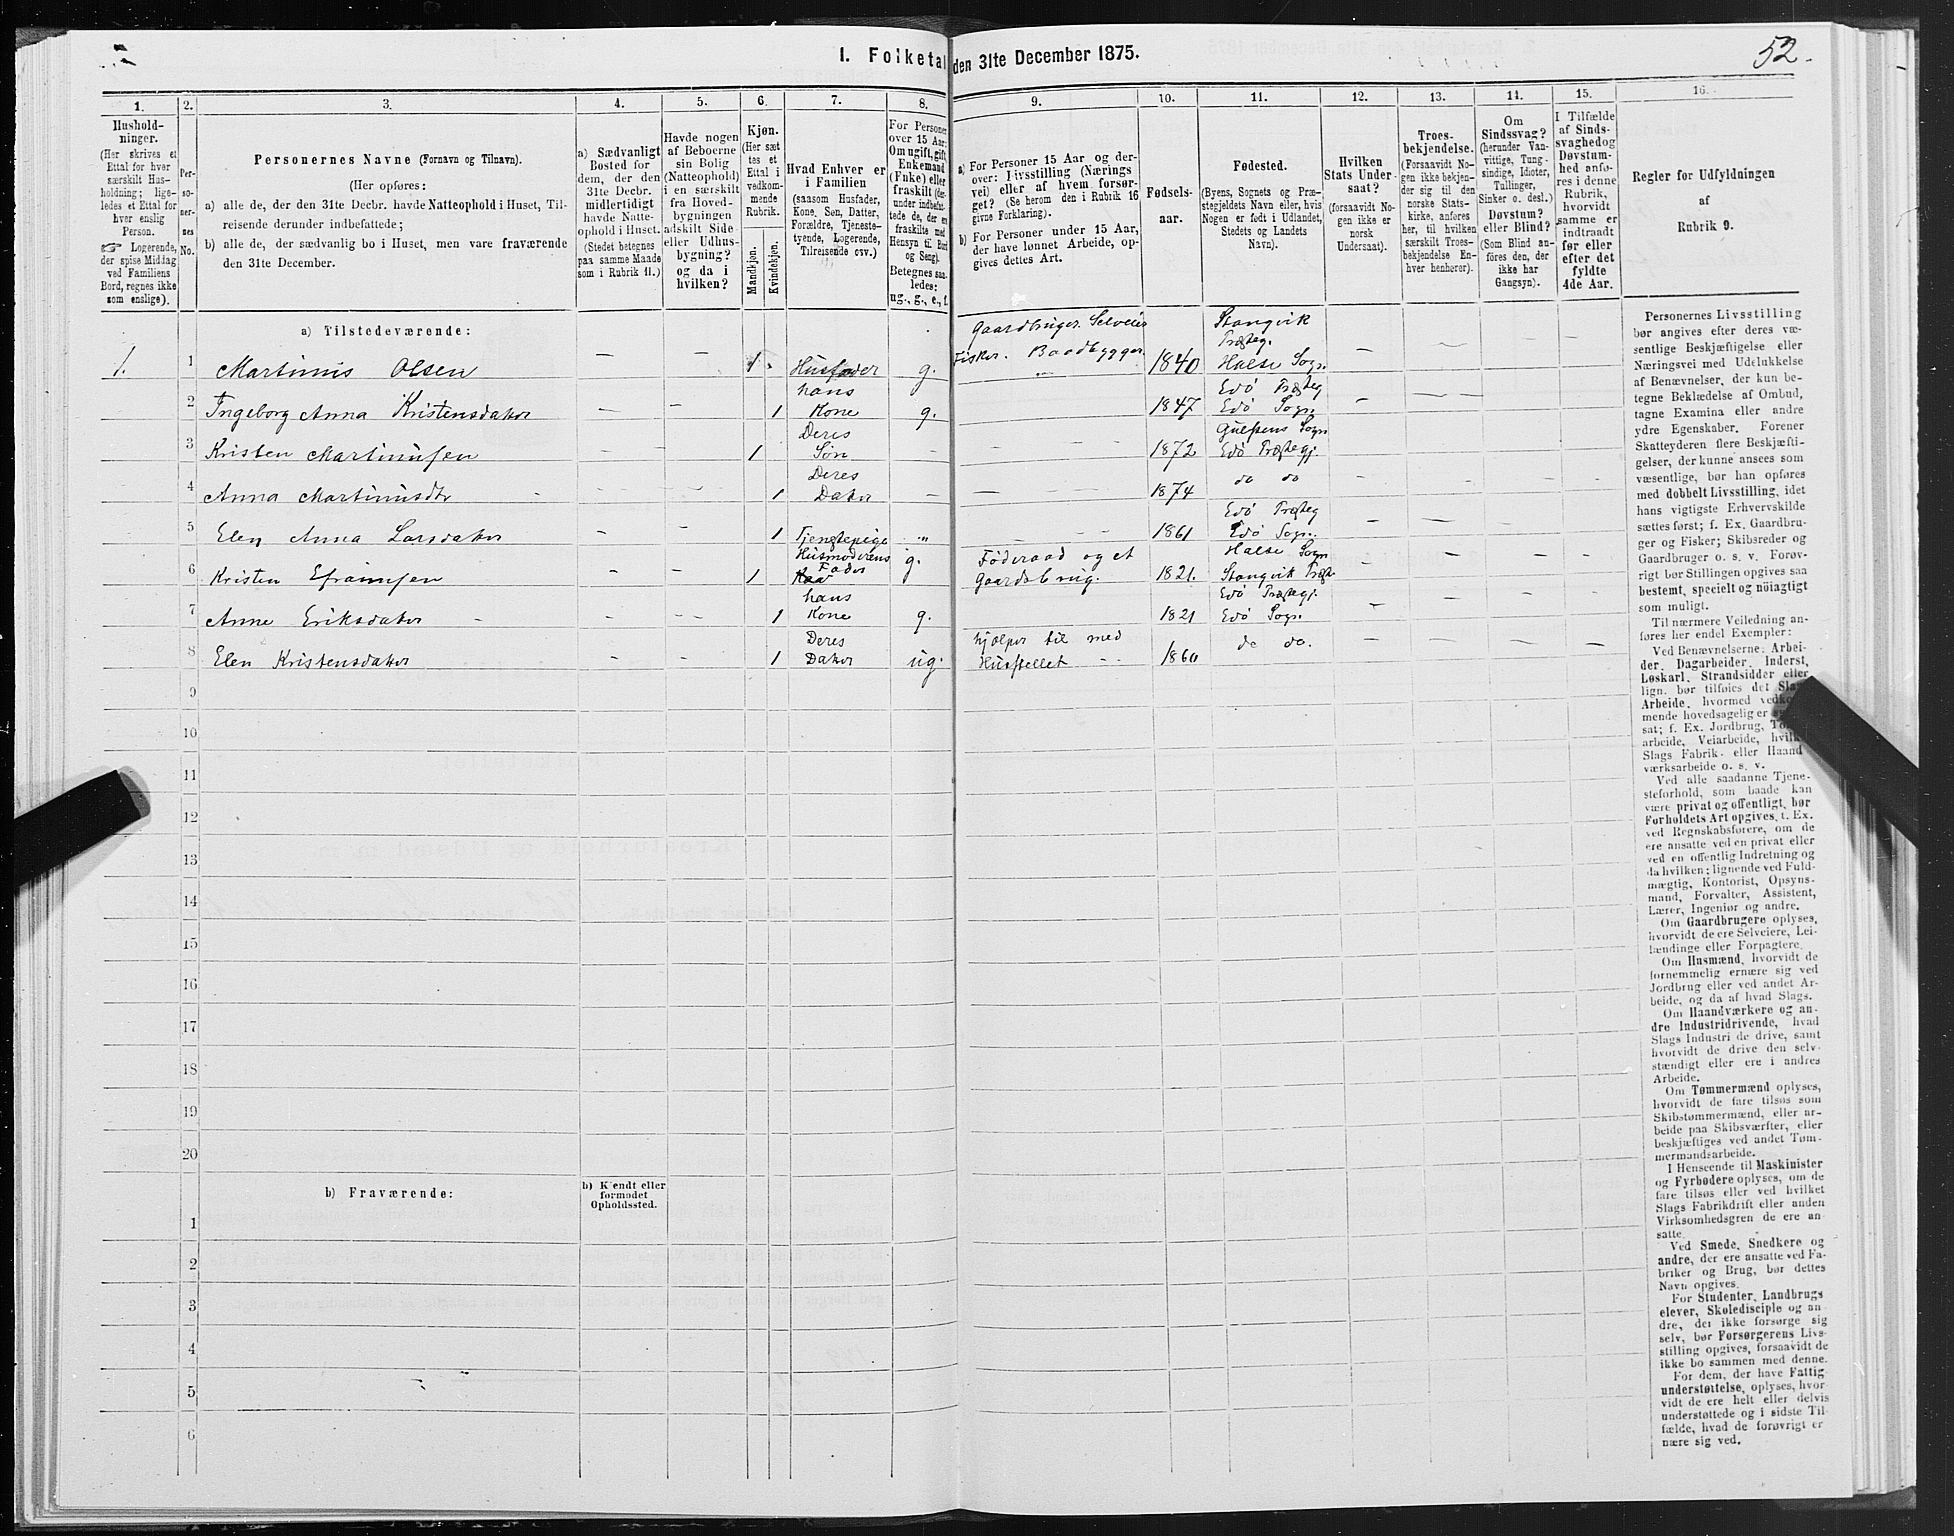 I. Folketal den 31te December 1875.
52.
1. 2. 3. 4. 5. 6. 7. 8. 9. 10. 11. 12. 13. 14. 15. 16.
Hushold-
ninger.
(Her skrives et
Ettal for hver
særskilt Hus-
holdning; lige-
ledes et Ettal for
hver enslig
Person.
☞ Logerende,
der spise Middag
ved Familiens
Bord, regnes ikke
som enslige).
Per-
so-
ner-
nes
No.
Personernes Navne (Fornavn og Tilnavn).
(Her opføres:
a) alle de, der den 31te Decbr. havde Natteophold i Huset, Til-
reisende derunder indbefattede;
b) alle de, der sædvanlig bo i Huset, men vare fraværende
den 31te December.
a) Sædvanligt
Bosted for
dem, der den
31te Decbr.
midlertidigt
havde Natte-
ophold i Huset.
(Stedet betegnes
paa samme Maade
som i Rubrik 11.)
Havde nogen
af Beboerne
sin Bolig
(Natteophold)
i en særskilt
fra Hoved-
bygningen
adskilt Side-
eller Udhus-
bygning?
og da i
hvilken?
Kjøn.
(Her sæt
tes et
Ettal i
vedkom-
mende
Rubrik.
Mandkjøn.
Kvindekjøn.
Hvad Enhver er
i Familien
(saasom Husfader,
Kone, Søn, Datter,
Forældre, Tjeneste-
tyende, Logerende,
Tilreisende osv.)
For Personer
over 15 Aar:
Om ugift, gift,
Enkemand
(Enke) eller
fraskilt (der-
under indbefat-
tede de, der ere
fraskilte med
Hensyn til Bord
og Seng).
Betegnes saa-
ledes:
ug., g., e., f.
a) For Personer 15 Aar og der-
over: Livsstilling (Nærings
vei) eller af hvem forsør-
get? (Se herom den i Rubrik 16
givne Forklaring).
b) For Personer under 15 Aar,
der have lønnet Arbeide, op-
gives dettes Art.
Fødsels-
aar.
Fødested.
(Byens, Sognets og Præ-
stegjeldets Navn eller, hvis
Nogen er født i Udlandet,
Stedets og Landets
Navn).
Hvilken
Stats Under-
saat?
(forsaavidt No-
gen ikke er
norsk
Undersaat).
Troes-
bekjendelse.
(Forsaavidt No-
gen ikke bekjen-
der sig til den
norske Stats-
kirke, anføres
her, til hvilken
særskilt Troes-
bekjendelse En-
hver henhører).
Om
Sindssvag?
(herunder Van-
vittige, Tung-
sindige, Idioter,
Tullinger,
Sinker o. desl.)
Døvstum?
eller Blind?
(Som Blind an-
føres den, der
ikke har
Gangsyn).
I Tilfælde
af Sinds-
svaghed og
Døvstum-
hed anfø-
res i denne
Rubrik,
hvorvidt
samme er
indtraadt
før eller
efter det
fyldte
4de Aar.
Regler for Udfyldningen
af
Rubrik 9.
a) Tilstedeværende:
Gaardbruger. Selveier Stangvik
Præsteg.
1. 1 Martinus Olsen — — 1 Husfader g. Fisker. Baadbygger. 1840 Halse Sogn
hans Edö Præsteg
2 Ingeborg Anna Kristensdater — — 1 Kone g. 1847 Edö Sogn.
Deres Sogn
3 Kristen Martinusen 1 Søn — 1872 Edö Præstegj.
Deres
4 Anna Martinusdtr 1 Dater — 1874 do do
Edö Præsteg
5 Elen Anna Larsdater 1 Tjenestepige 1861 Edö Sogn.
Husmoderens Føderaad og et Halse Sogn
Fader
6 Kristen Efraimsen 1 g. Gaardsbrug. 1821. Stangvik Præst
hans Edö Præstegj.
7 Anne Eriksdater 1 Kone g. 1821 Edö Sogn.
Deres hjælper til med
8 Elen Kristensdater 1 Dater ug. Husstellet 1860 do do.
9
10
11
12
13
14
15
16
17
18
19
20
b) Fraværende:
b) Kjendt eller
formodet
Opholdssted.
1
2
3
4
5
6
Personernes Livsstilling
bør angives efter deres væ-
sentlige Beskjæftigelse eller
Næringsvei med Udelukkelse
af Benævnelser, der kun be-
tegne Beklædelse af Ombud,
tagne Examina eller andre
ydre Egenskaber. Forener
Skatteyderen flere Beskjæfti-
gelser, der kunne ansees som
væsentlige, bør han opføres
med dobbelt Livsstilling, idet
hans vigtigste Erhvervskilde
sættes først; f. Ex. Gaardbru-
ger og Fisker; Skibsreder og
Gaardbruger o. s. v. Forøv-
rigt bør Stillingen opgives saa
bestemt, specielt og nöiagtigt
som muligt.
Til nærmere Veiledning an-
føres her endel Exempler:
Ved Benævnelserne: Arbei-
der, Dagarbeider, Inderst,
Løskarl, Strandsidder eller
lign. bør tilføies det Slags
Arbeide, hvormed vedkom-
mende hovedsagelig er
sat; f. Ex. Jordbrug,
arbeide, Veiarbeide, hvilket
Slags Fabrik- eller Haand-
værksarbeide o. s. v.
Ved alle saadanne Tjene-
steforhold, som baade kan
være privat og offentligt, bør
Forholdets Art opgives, t. Ex.
ved Regnskabsførere, om de
ere ansatte ved en privat eller
ved en offentlig Indretning og
da hvilken; lignende ved Fuld-
mægtig, Kontorist, Opsyns-
mand, Forvalter, Assistent,
Lærer, Ingeniør og andre.
Om Gaardbrugere oplyses,
hvorvidt de ere Selveiere, Lei-
lændinge eller Forpagtere.
Om Husmænd, hvorvidt de
fornemmelig ernære sig ved
Jordbrug eller ved andet Ar-
beide, og da af hvad Slags.
Om Haandværkere og an-
dre Industridrivende, hvad
Slags Industri de drive, samt
hvorvidt de drive den selv-
stændigt eller ere i andres
Arbeide.
Om Tømmermænd oplyses,
hvorvidt de fare tilsøs som
Skibstømmermænd, eller ar-
beide paa Skibsværfter, eller
beskjæftiges ved andet Tøm-
mermandsarbeide.
I Henseende til Maskinister
og Fyrbødere oplyses, om de
fare tilsøs eller ved hvilket
Slags Fabrikdrift eller anden
Virksomhedsgren de ere an-
satte.
Ved Smede, Snedkere og
andre, der ere ansatte ved Fa-
briker og Brug, bør dettes
Navn opgives.
For Studenter, Landbrugs
elever, Skoledisciple og an-
dre, der ikke forsørge sig
selv, bør Forsørgerens Livs-
stilling opgives, forsaavidt de
ikke bo sammen med denne.
For dem, der have Fattig-
understøttelse, oplyses, hvor-
vidt de ere helt eller delvis
understøttede og i sidste Til-
fælde, hvad de forøvrigt er
nære sig ved.